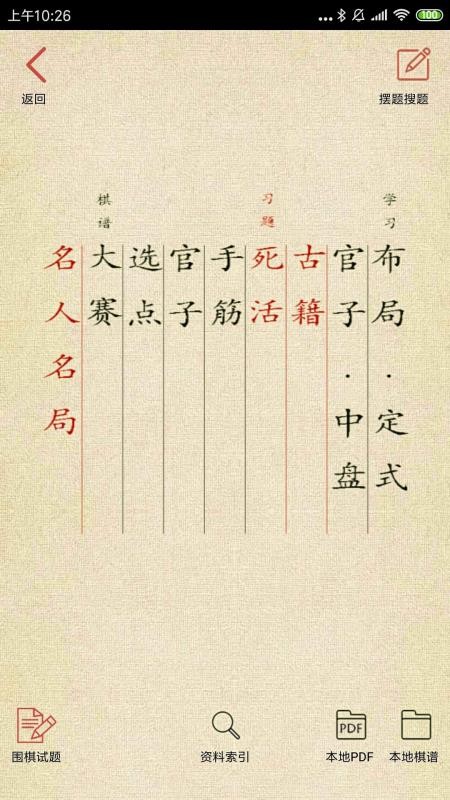 上午10:26
100
返回
摆题搜题
学习
布局.定式
官子.中盘
习题
古籍
死活
手筋
官子
选点
棋谱
大赛
名人名局
围棋试题
资料索引
PDF
本地PDF
本地棋谱